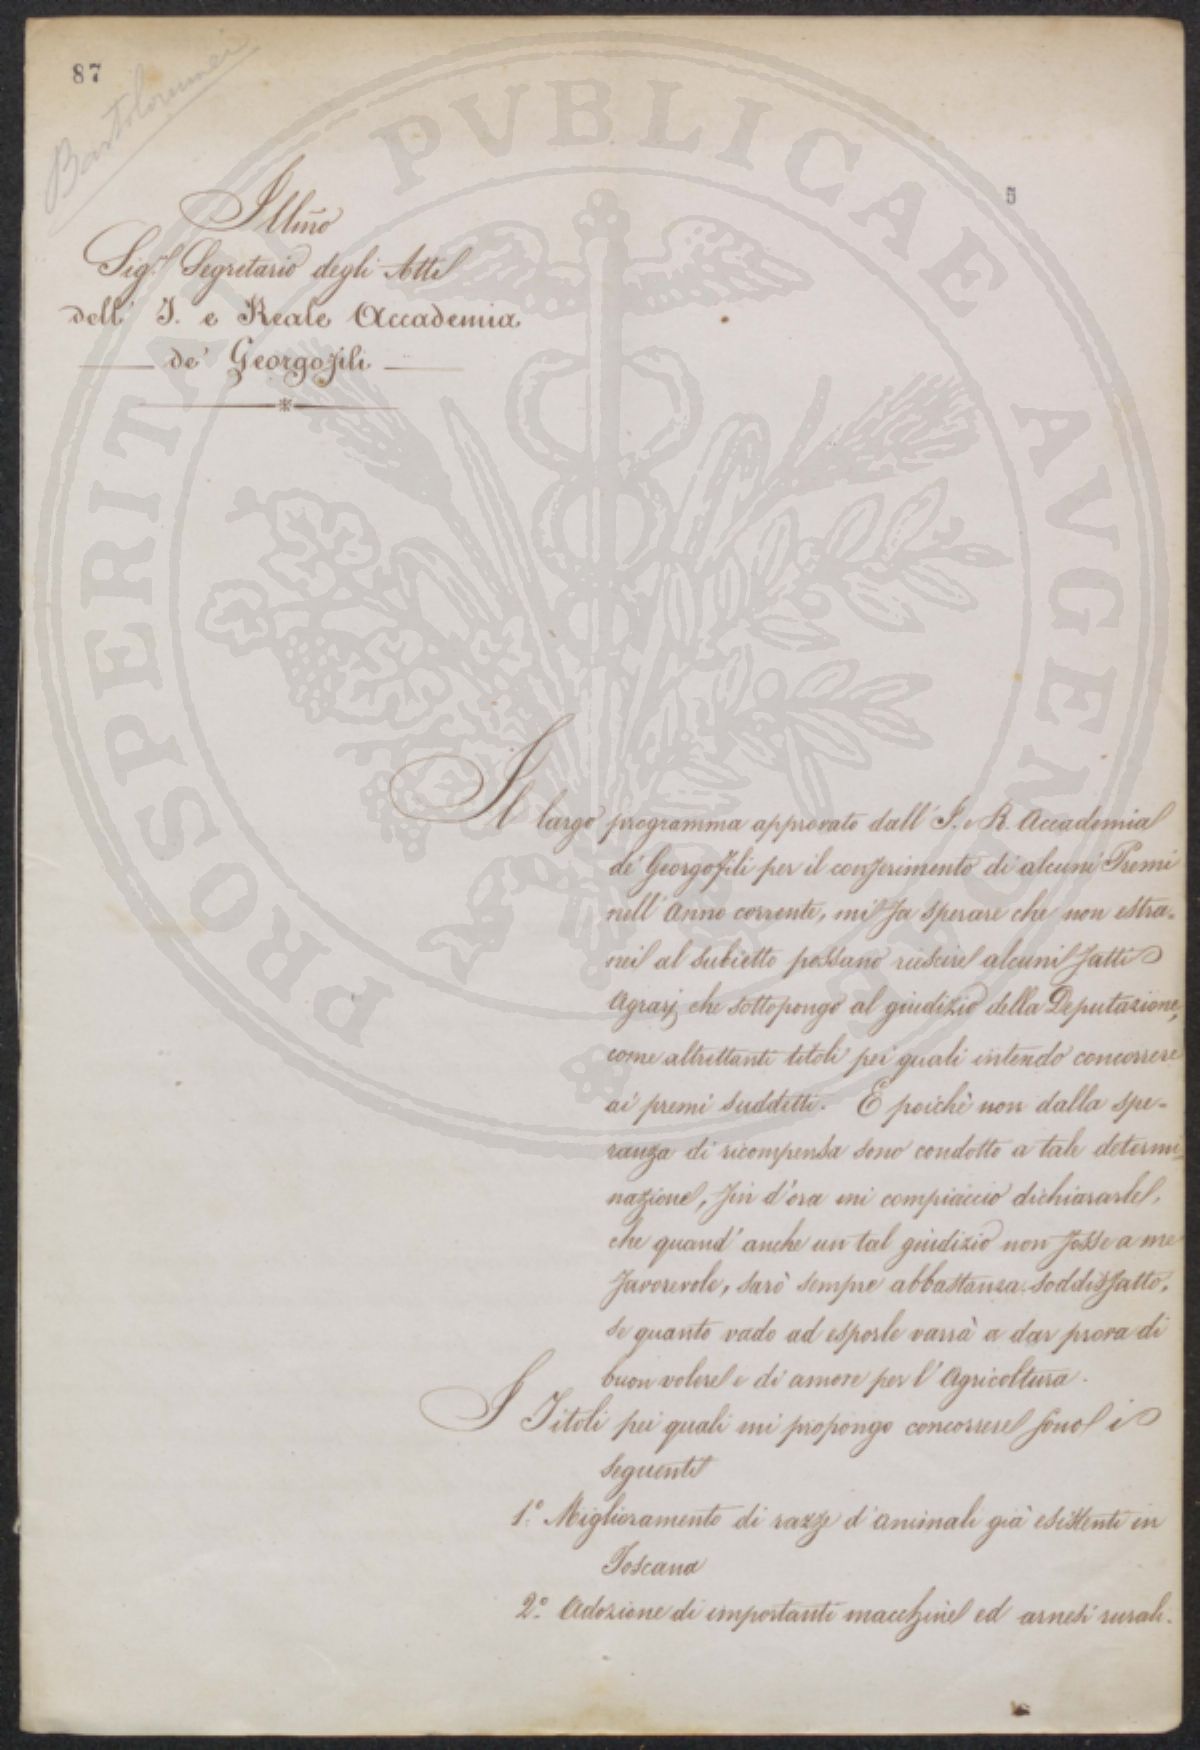 87
Bartolommei
5
Illmo
Sig.r Segretario degli Atti
dell' I. e Reale Accademia
de' Georgofili
Il largo programma approvato dall' I. e R. Accademia
de' Georgofili per il conferimento di alcuni Premi
nell' Anno corrente, mi fa sperare che non estra-
nei al subietto possano riescire alcuni fatti
Agrarj che sottopongo al giudizio della Deputazione,
come altrettanti titoli pei quali intendo concorrere
ai premi suddetti. E poichè non dalla spe-
ranza di ricompensa sono condotto a tale determi-
nazione, fin d'ora mi compiaccio dichiararle,
che quand' anche un tal giudizio non fosse a me
favorevole, sarò sempre abbastanza soddisfatto,
se quanto vado ad esporle varrà a dar prova di
buon volere e di amore per l' Agricoltura.
I Titoli pei quali mi propongo concorrere sono i
seguenti
1.° Miglioramento di razze d' animali già esistenti in
Toscana
2.° Adozione di importanti macchine ed arnesi rurali.
PROSPERITATI PVBLICAE AVGENDAE